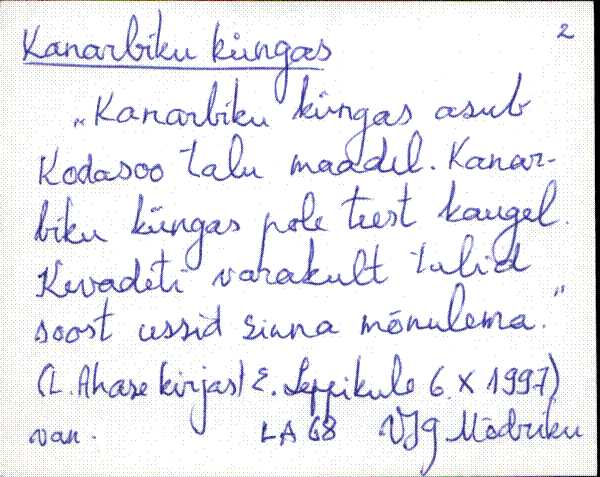 2
Kanarbiku küngas
„Kanarbiku küngas asub
Kodasoo talu maadel. Kanar-
biku küngas pole teest kaugel.
Kevadeti varakult tulid
soost ussid sinna mõnulema."
(L. Ahase kirjast E. Leppikule 6. X 1997)
van. LA 68 VJg Mõdriku